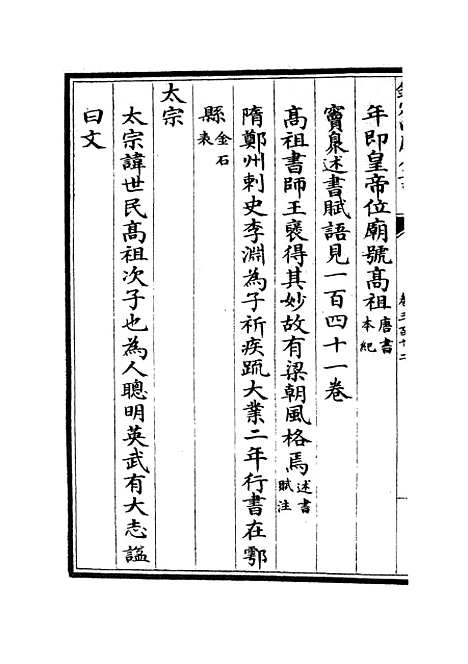 年即皇帝位廟號髙祖唐書本紀
竇臮述書賦語見一百四十一卷
髙祖書師王裒得其妙故有梁朝風格焉述書賦注
隋鄭州刺史李淵為子祈疾䟽大業二年行書在鄠
縣金石表
太宗
太宗諱世民髙祖次子也為人聰明英武有大志諡
曰文